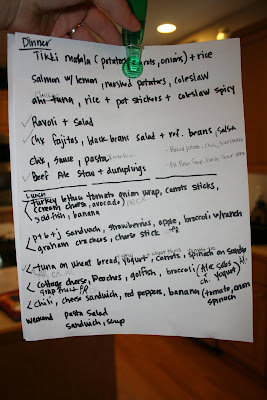 Dinner
Tikki Masala (potatoes, carrots, onions) + rice
Salmon w/ lemon, mashed potatoes, coleslaw
ahi tuna, rice + pot stickers + coleslaw spicy
✓ Ravoli + Salad
✓ Chx fajitas, black beans salad + ref. beans, salsa
Chx, sauce, pasta
✓ Beef Ale Stew + dumplings
Lunch
turkey lettuce tomato onion wrap, carrots sticks,
(cream cheese, avocado)
goldfish, banana
p+b+j sandwich, strawberries, apple, broccoli w/ranch
graham crackers, cheese stick
tuna on wheat bread, yogurt, carrots, spinach on sandw
cottage cheese, Peaches, golfish, broccoli
grapefruit
yogurt)
chili, cheese sandwich, red peppers, banana (tomato, onion
spinach
weekend Pasta Salad
sandwich, soup